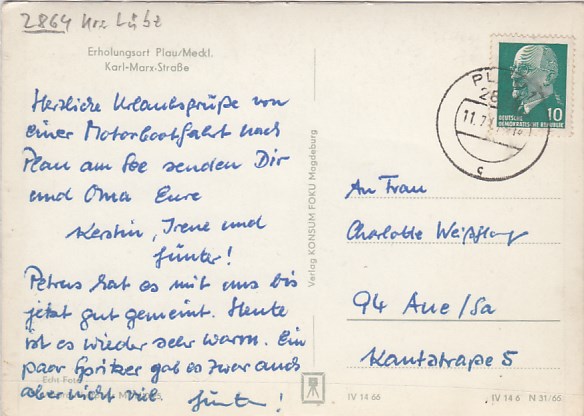 2864 Krs Lübz
Erholungsort Plau/Meckl.
Karl-Marx-Straße
Herzliche Urlaubsgrüße von
einer Motorbootfahrt nach
Plau am See senden Dir
und Oma Eure
Kerstin, Irene und
Günter!
Petrus hat es mit uns bis
jetzt gut gemeint. Heute
ist es wieder sehr warm. Ein
paar Spritzer gab es zwar auch
aber nicht viel. Günter!
Echt Foto
Verlag KONSUM FOKU Magdeburg
PL
11.7
c
10
DEUTSCHE
DEMOKRATISCHE REPUBLIK
An Frau
Charlotte Weißflog
94 Aue/Sa
Kantstraße 5
IV 14 66
IV 14 6 N 31/66